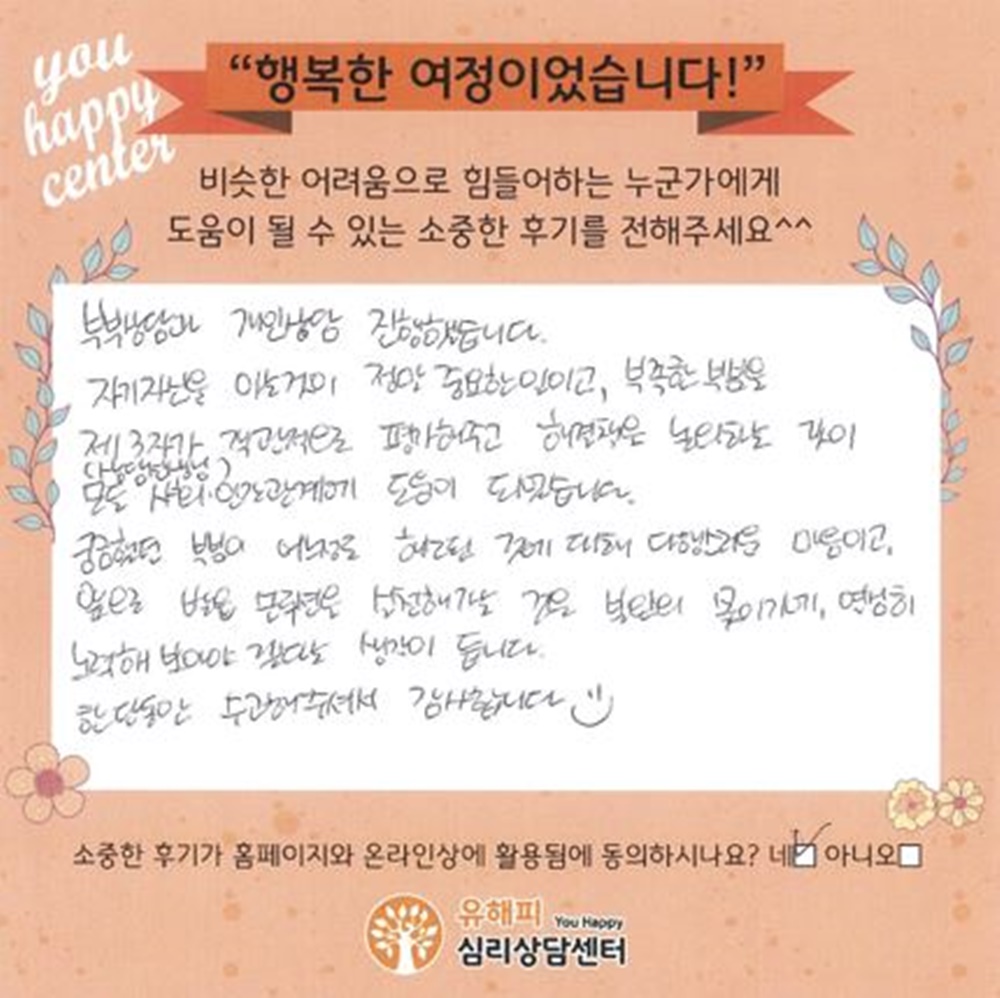 you
happy
center
“행복한 여정이었습니다!”
비슷한 어려움으로 힘들어하는 누군가에게
도움이 될 수 있는 소중한 후기를 전해주세요^^
부부상담과 개인상담 진행했습니다.
자기자신을 아는것이 정말 중요한일이고, 부족한 부분을
제 3자가 객관적으로 평가해주고 해결책을 논의하는 것이
(상담선생님)
모든 사회·인간관계에 도움이 되었습니다.
궁금했던 부분이 어느정도 해소된 것에 대해 다행스러운 마음이고,
앞으로 남은 부분을 실천해가는 것은 본인의 몫이기에, 열심히
노력해 보아야 겠다는 생각이 듭니다.
한 달동안 수고해주셔서 감사합니다
소중한 후기가 홈페이지와 온라인상에 활용됨에 동의하시나요? 네 아니오
유해피 You Happy
심리상담센터